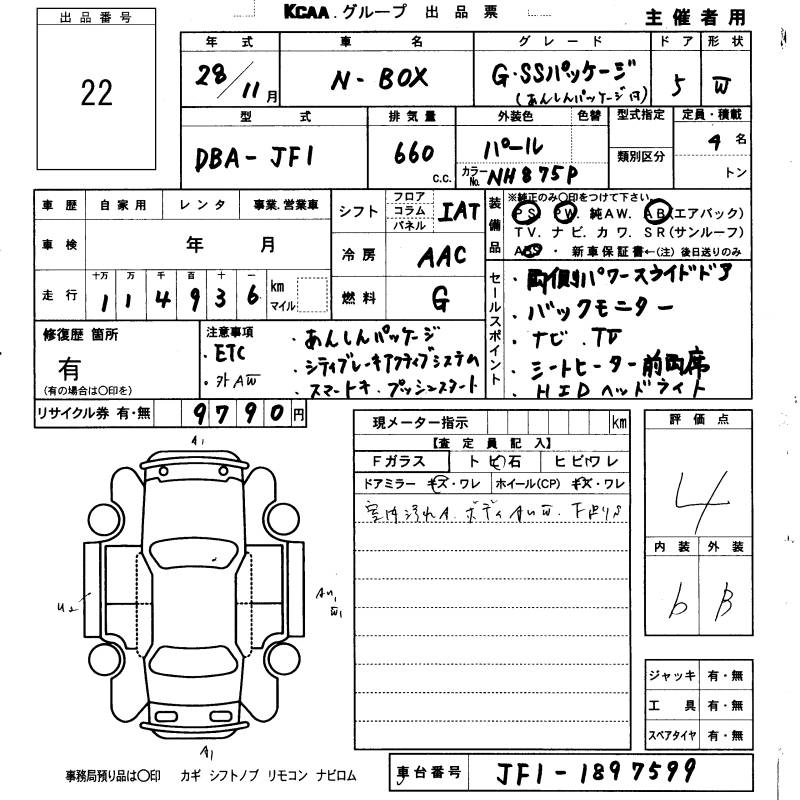 KCAA.グループ 出品票 主催者用
出品番号
22
年式 車名 グレード ドア 形状
28/11月 N-BOX G・SSパッケージ 5 W
(あんしんパッケージ付)
型式 排気量 外装色 色替 型式指定 定員・積載
DBA-JF1 660 c.c. パール 類別区分 4名
カラーNo. NH875P トン
車歴 自家用 レンタ 事業.営業車
車検 年 月
走行 十万 万 千 百 十 一
1 1 4 9 3 6 km マイル
シフト フロア コラム パネル IAT
冷房 AAC
燃料 G
装備品 ※純正のみ○印をつけて下さい
PS. PW. 純AW. AB(エアバック)
TV. ナビ. カワ. SR(サンルーフ)
ABS ・ 新車保証書←(注) 後日送りのみ
セールスポイント
・両側パワースライドドア
・バックモニター
・ナビ.TV
・シートヒーター前両席
・HIDヘッドライト
修復歴 箇所
有
(有の場合は○印を)
注意事項
・ETC
・外AW
・あんしんパッケージ
・シティブレーキアクティブシステム
・スマートキ.プッシュスタート
リサイクル券 有・無 9790円
現メーター指示 km
【査定員記入】
Fガラス トビ石 ヒビワレ
ドアミラー キズ・ワレ ホイール(CP) キズ・ワレ
室内汚れA. ボディAUW.
評価点
4
内装 外装
b B
A1
U2
AU1
W1
A1
ジャッキ 有・無
工具 有・無
スペアタイヤ 有・無
事務局預り品は○印 カギ シフトノブ リモコン ナビロム
車台番号 JF1-1897599